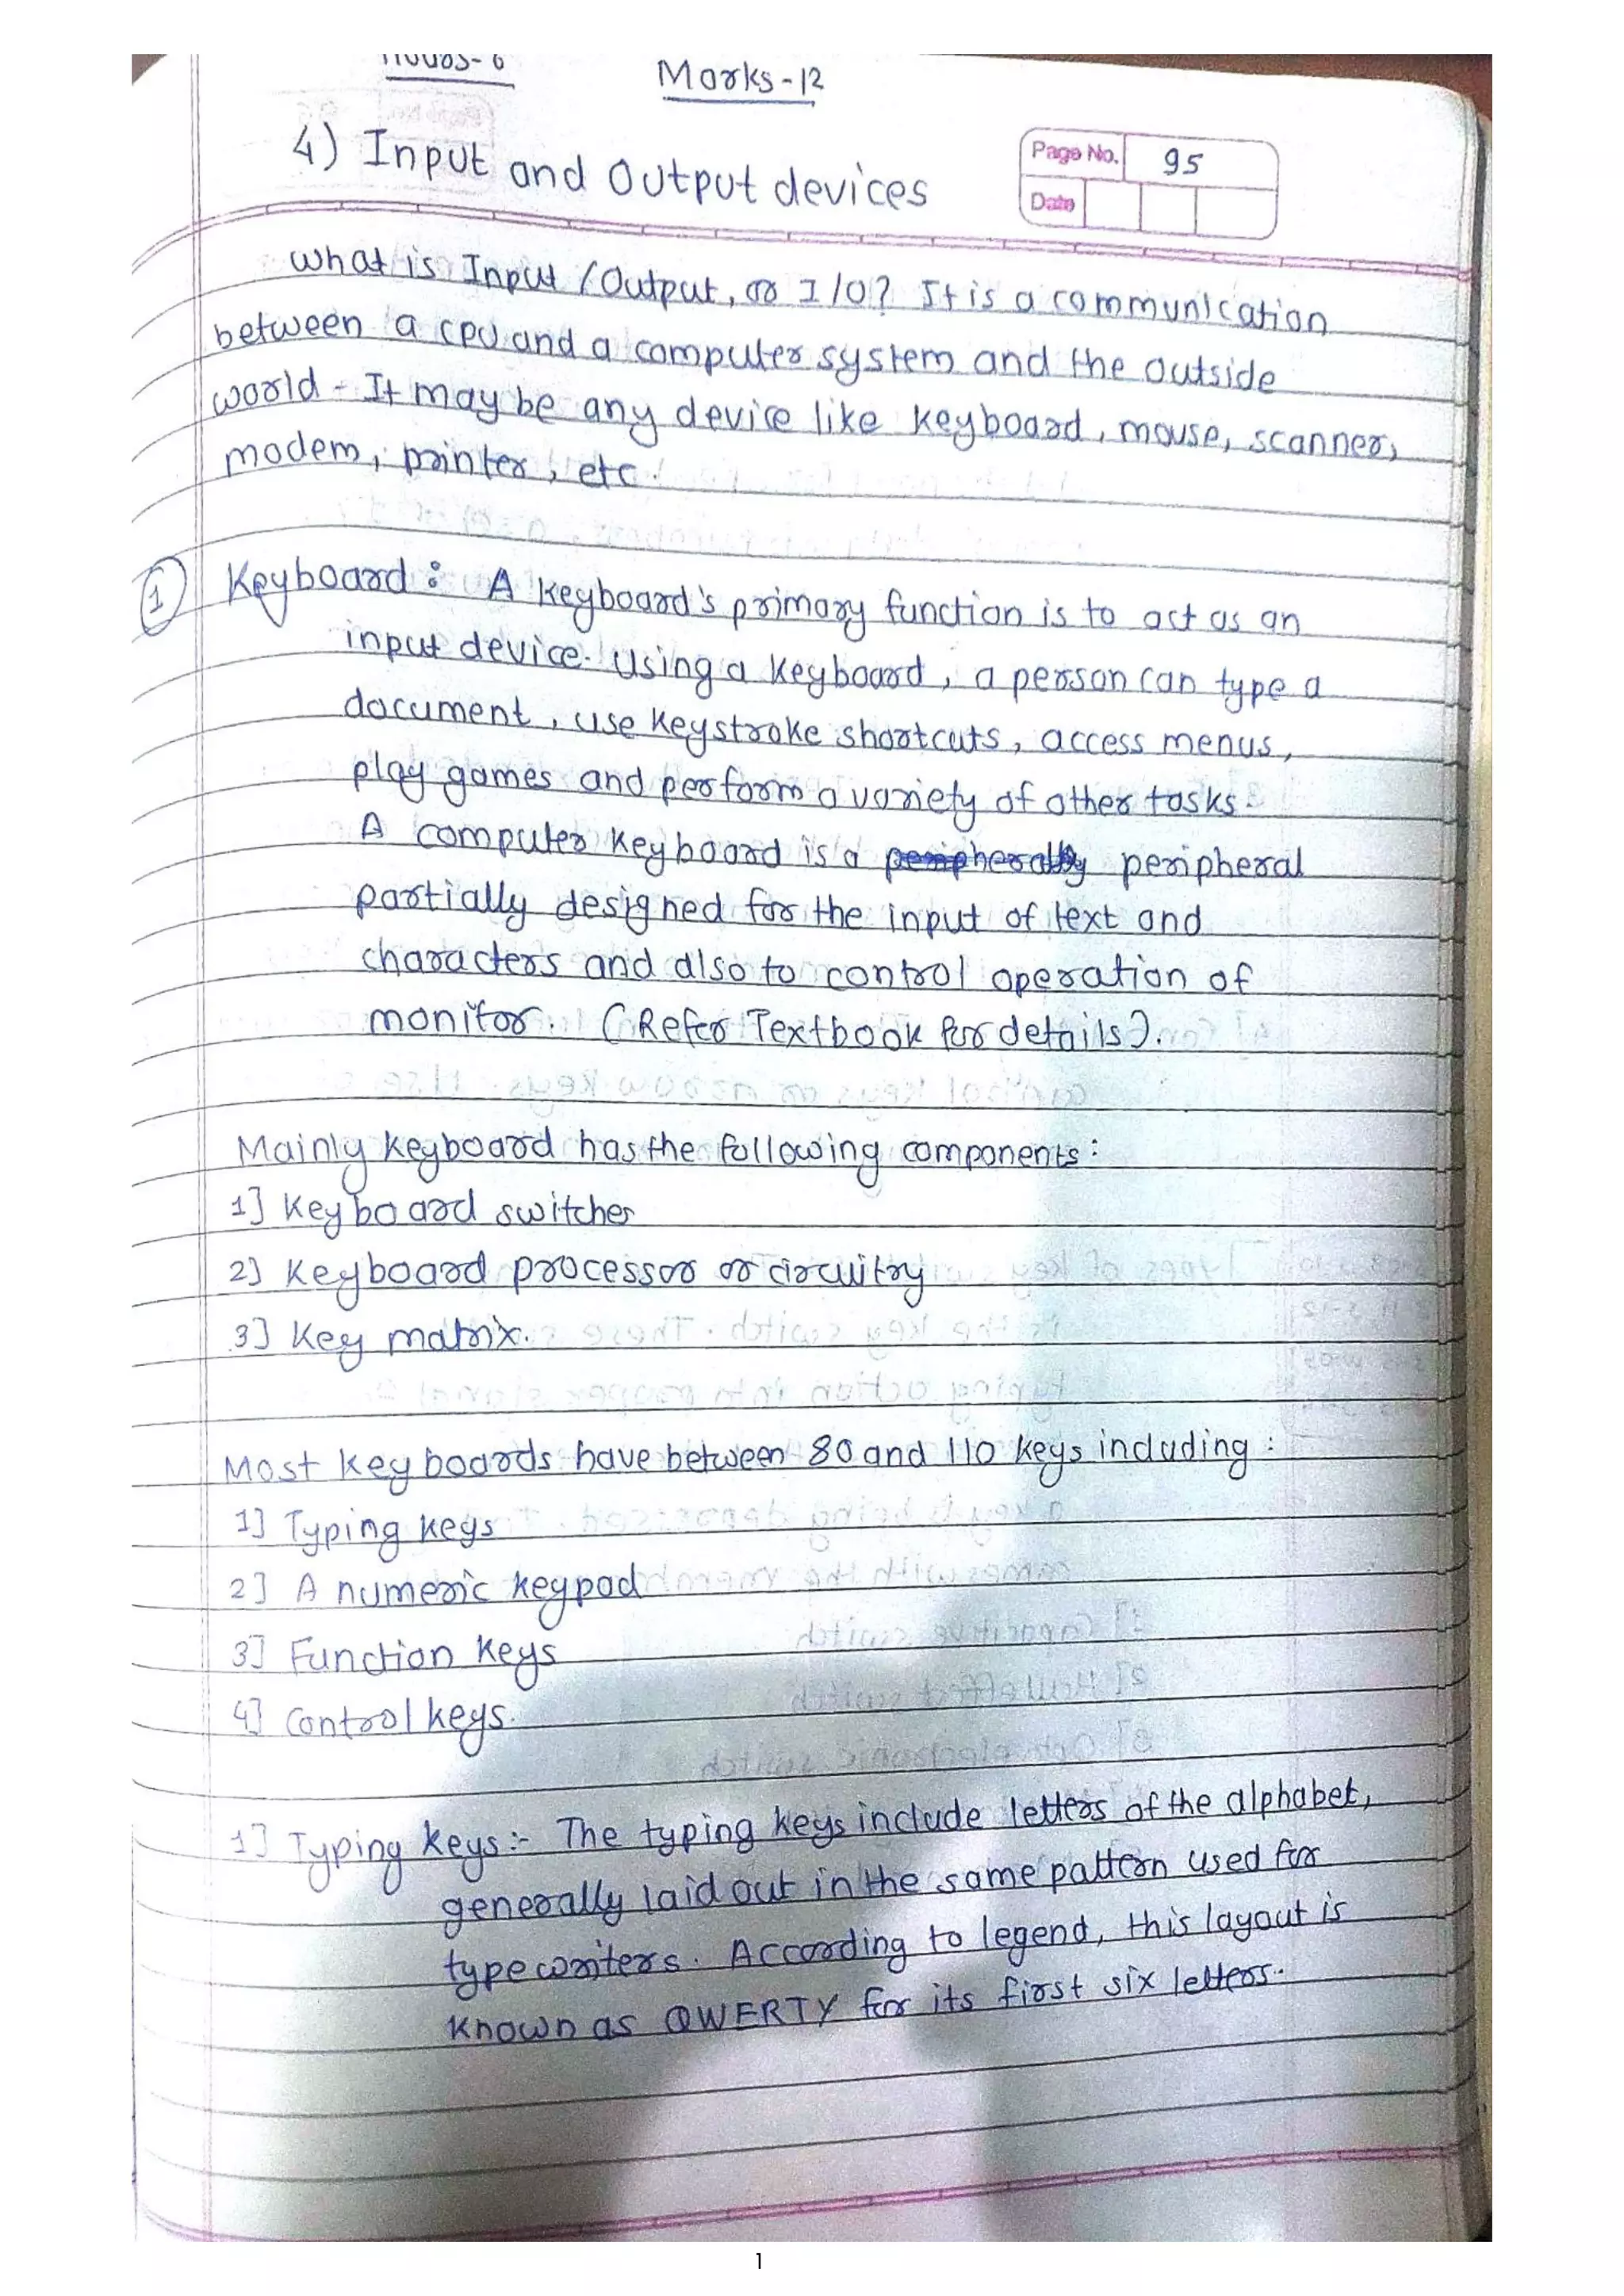 Marks-12
4) Input and Output devices
Page No. 95
Date
What is Input / Output, or I/O? It is a communication
between a CPU and a computer system and the outside
world - It may be any device like keyboard, mouse, scanner,
modem, printer, etc.
1 Keyboard : A keyboard's primary function is to act as an
input device. Using a keyboard, a person can type a
document, use keystroke shortcuts, access menus,
play games and perform a variety of other tasks.
A computer keyboard is a peripheral
partially designed for the input of text and
characters and also to control operation of
monitor. (Refer Textbook for details).
Mainly keyboard has the following components :
1] Keyboard switches
2] Keyboard processor or circuitry
3] Key matrix.
Most keyboards have between 80 and 110 keys including :
1] Typing keys
2] A numeric keypad
3] Function keys
4] Control keys.
1] Typing keys :- The typing keys include letters of the alphabet,
generally laid out in the same pattern used for
typewriters. According to legend, this layout is
known as QWERTY for its first six letters.
1